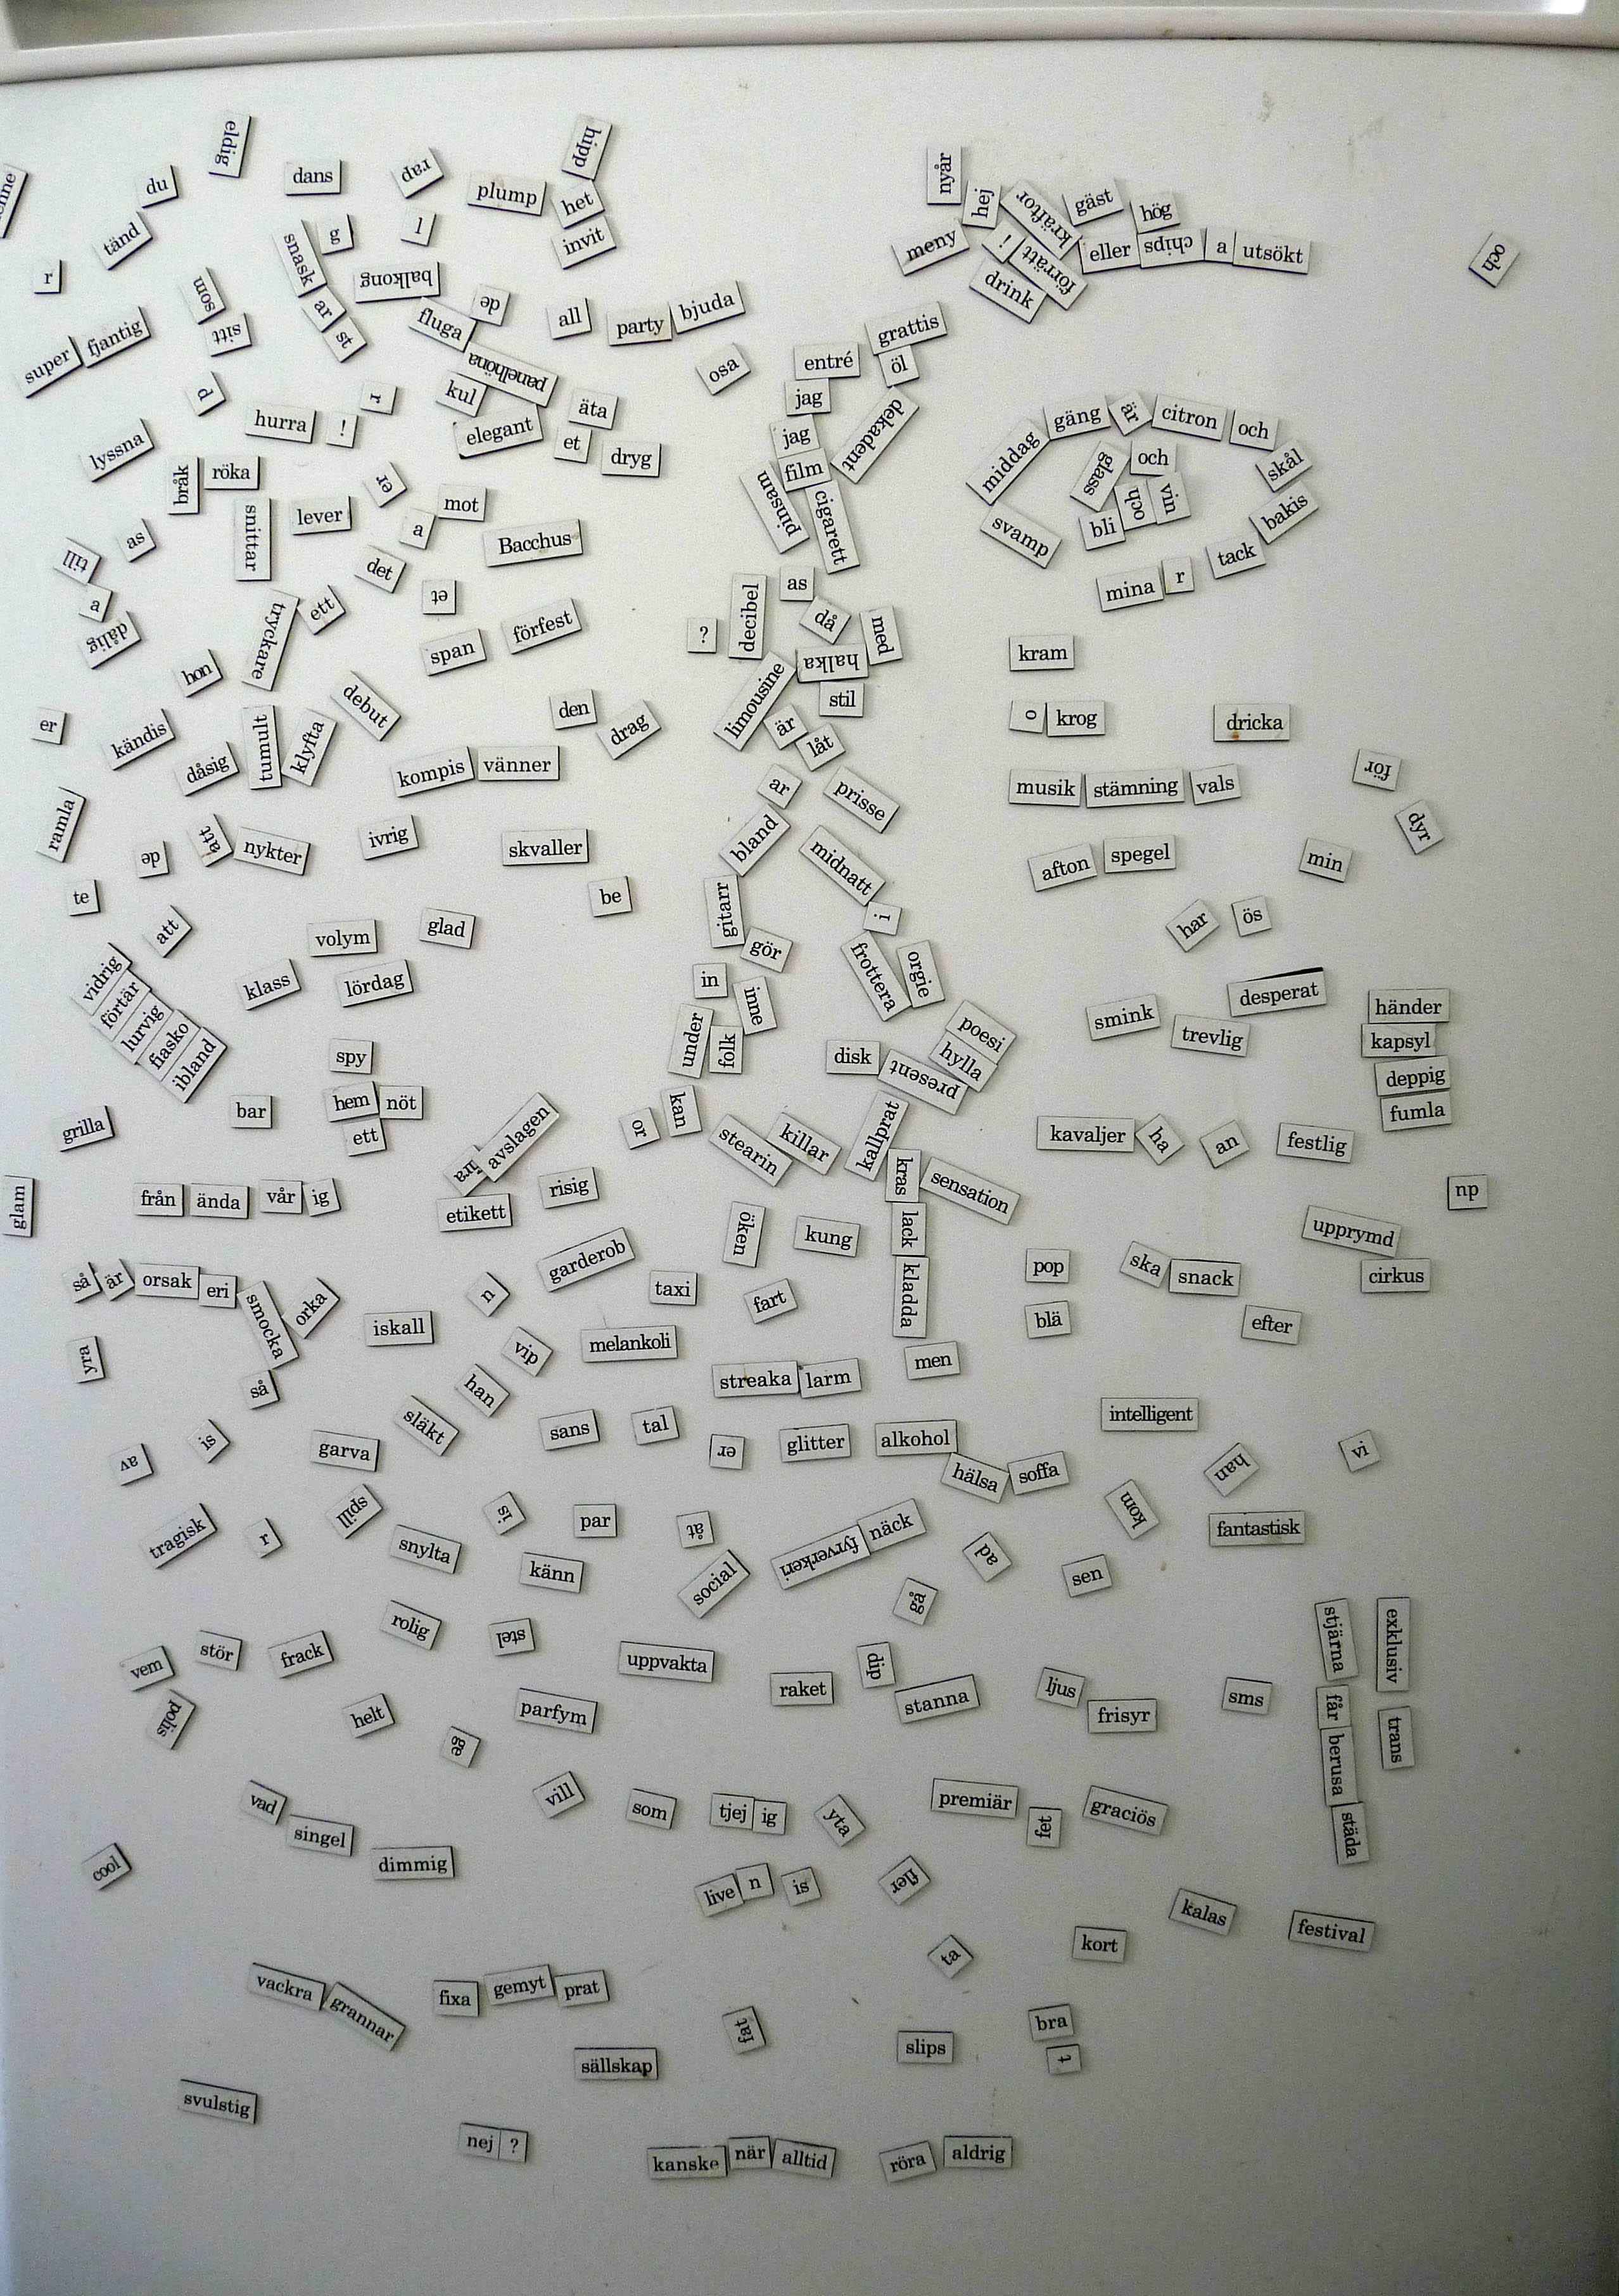 eldig
hipp
du
dans
rap
plump
het
nyår
hej
kräftor
gäst
hög
tänd
snask
g
l
invit
meny
i
förrätt
eller
chips
a
utsökt
och
r
som
balkong
de
drink
sitt
ar
st
fluga
all
party
bjuda
grattis
super
fjantig
panelhöna
osa
entré
öl
d
r
kul
äta
jag
dekadent
hurra
!
elegant
et
jag
middag
gäng
är
citron
och
lyssna
dryg
film
glass
och
skål
bråk
röka
er
mot
pinsam
cigarett
och
vin
bakis
snittar
lever
a
svamp
bli
as
Bacchus
tack
till
det
et
as
mina
r
a
ett
decibel
då
med
dålig
tryckare
span
förfest
?
halka
kram
hon
limousine
stil
er
kändis
debut
den
drag
är
låt
o
krog
dricka
dåsig
tumult
klyfta
kompis
vänner
ar
prisse
musik
stämning
vals
för
ramla
de
att
nykter
ivrig
skvaller
bland
midnatt
afton
spegel
min
dyr
te
be
gitarr
i
har
ös
att
volym
glad
gör
vidrig
klass
lördag
in
inne
frottera
orgie
desperat
händer
förtär
lurvig
fiasko
ibland
spy
under
folk
disk
present
poesi
hylla
smink
trevlig
kapsyl
deppig
fumla
grilla
bar
hem
nöt
ett
avslagen
or
kan
stearin
killar
kallprat
kavaljer
ha
an
festlig
glam
från
ända
vår
ig
etikett
risig
kras
sensation
np
öken
kung
lack
upprymd
så
är
orsak
eri
garderob
taxi
fart
kladda
pop
ska
snack
cirkus
smocka
orka
n
iskall
vip
melankoli
blä
efter
yra
så
han
streaka
larm
men
av
is
garva
släkt
sans
tal
er
glitter
alkohol
intelligent
hälsa
soffa
han
vi
tragisk
r
spill
snylta
si
par
åt
fyrverkeri
näck
kom
fantastisk
känn
social
ad
sen
gå
vem
stör
frack
rolig
stel
uppvakta
dip
stjärna
exklusiv
polis
helt
ge
parfym
raket
stanna
ljus
frisyr
sms
får
trans
berusa
vad
singel
vill
som
tjej
ig
yta
premiär
fet
graciös
städa
cool
dimmig
live
n
is
fler
kalas
festival
ta
kort
vackra
grannar
fixa
gemyt
prat
fat
bra
slips
t
sällskap
svulstig
nej
?
kanske
när
alltid
röra
aldrig